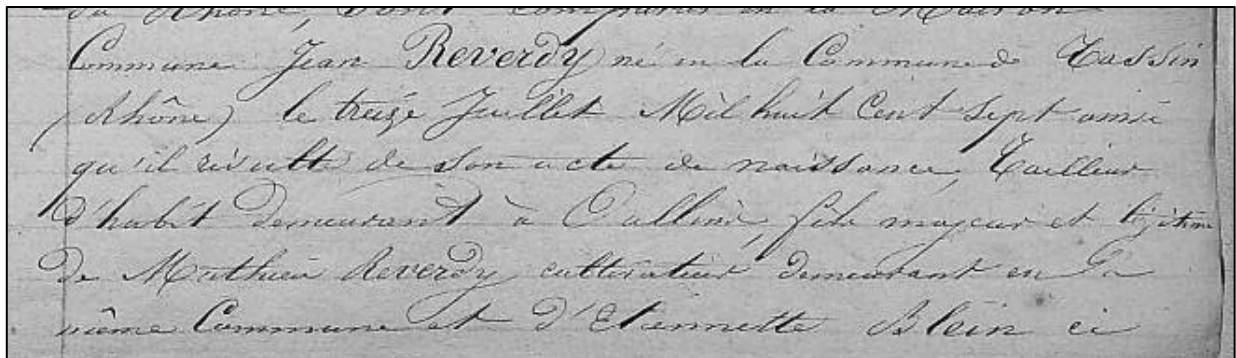 du Rhône, Sont comparus en la Maison
Commune Jean Reverdy né en la Commune de Tassin
(Rhône) le treize Juillet Mil huit Cent Sept ainsi
qu'il résulte de son acte de naissance, Tailleur
d'habit demeurant à Oullins, fils majeur et légitime
De Mathieu Reverdy, cultivateur, demeurant en la
même Commune et d'Etiennette Blein ci